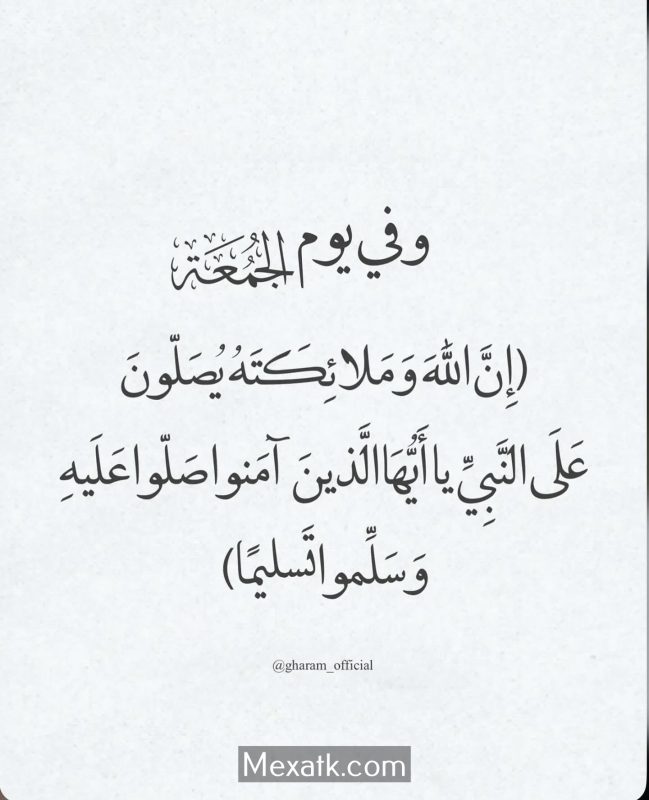 وفي يوم الجُمُعَة
(إِنَّ اللَّهَ وَمَلائِكَتَهُ يُصَلّونَ
عَلَى النَّبِيِّ يا أَيُّهَا الَّذينَ آمَنوا صَلّوا عَلَيهِ
وَسَلِّموا تَسليمًا)
@gharam_official
Mexatk.com